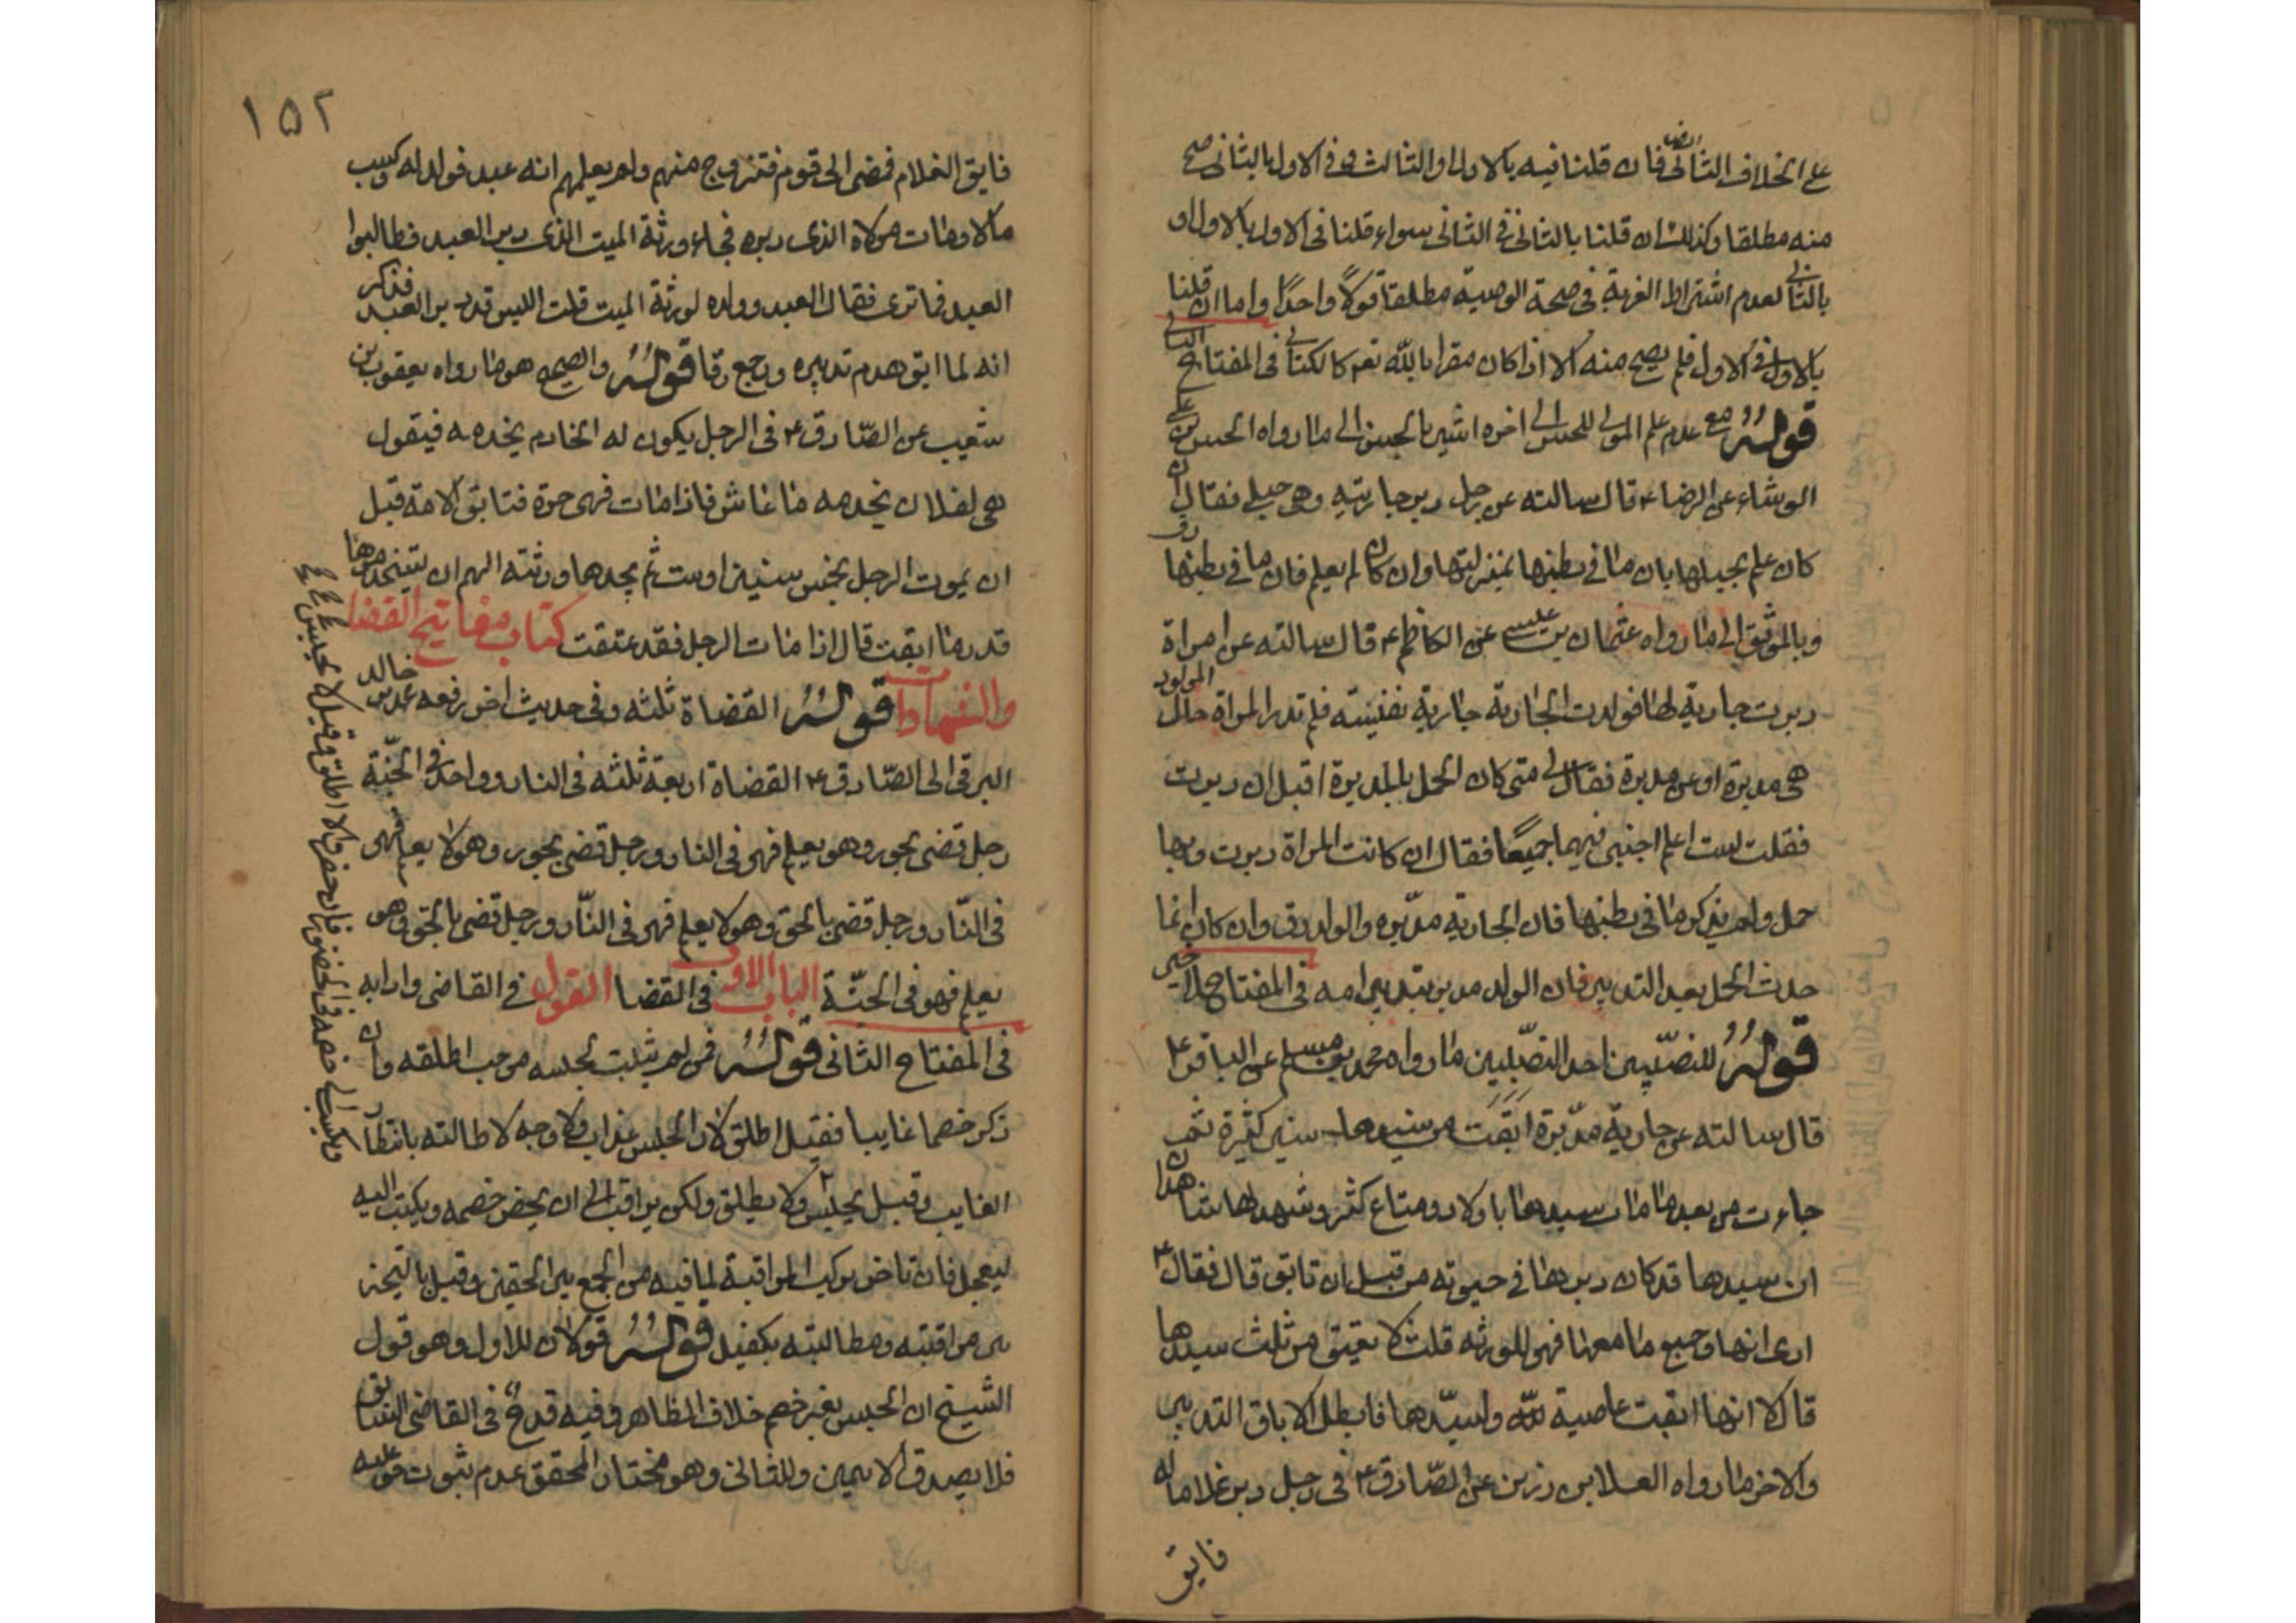 على الخلاف الثانى ايضا فان قلنا فيه بالاول او الثالث و فى الاول بالثانى صح
منه مطلقا وكذلك ان قلنا بالثانى فى الثانى سواء قلنا فى الاول بالاول او
بالثانى لعدم اشتراط القربة فى صحة الوصية مطلقا قولا واحدا واما ان قلنا
بالاول فى الاول فلم يصح منه الا اذا كان مقرا بالله تعم كالكتابى فى المفتاح الثانى
قوله مع عدم علم المولى للحسن الى اخره اشير بالحسن الى ما رواه الحسن بن على
الوشاء عن الرضا ع قال سالته عن رجل دبر جاريته وهى حبلى فقال ان
كان علم بحبلها بان ما فى بطنها بمنزلتها وان كان لم يعلم فان ما فى بطنها رق
وبالموثق الى ما رواه عثمان بن عيسى عن الكاظم ع قال سالته عن امراة
دبرت جارية لها فولدت الجارية جارية نفيسة فلم تدر المراة حال المولود
هى مدبرة او غير مدبرة فقال لى متى كان الحمل بالمدبرة اقبل ان دبرت
فقلت لست اعلم اجبنى فيهما جميعا فقال ان كانت المراة دبرت وبها
حمل ولم يذكر ما فى بطنها فان الجارية مدبره والولد رق وان كان انما
حدث الحمل بعد التدبير فان الولد مدبر بتدبير امه فى المفتاح
قوله للنصين احد النصين ما رواه محمد بن مسلم عن الباقر ع
قال سالته عن جارية مدبرة ابقت من سيدها سنين كثيرة ثم
جاءت من بعد ما مات سيدها باولاد ومتاع كثير وشهد لها شاهدان
ان سيدها قد كان دبرها فى حيوته من قبل ان تابق قال فقال ع
ارى انها وجميع ما معها فهى للورثه قلت لا يعتق من ثلث سيدها
قال لا انها ابقت عاصية لله ولسيدها فابطل الاباق التدبير
والاخر ما رواه العلا بن رزين عن الصادق ع فى رجل دبر غلاما له
فابق
١٥٢
فابق الغلام فمضى الى قوم فتزوج منهم ولم يعلمهم انه عبد فولد له وكسب
مالا ومات مولاه الذى دبره فجاء ورثة الميت الذى دبر العبد فطالبوا
العبد فما ترى فقال العبد وولده لورثة الميت قلت اليس قد دبر العبد فذكر
انه لما ابق هدم تدبيره ورجع رقا قوله والصحيح هو ما رواه يعقوب بن
شعيب عن الصادق ع فى الرجل يكون له الخادم يخدمه فيقول
هى لفلان يخدمه ما عاش فاذا مات فهى حرة فتابق الامة قبل
ان يموت الرجل بخمس سنين او ست ثم يجدها ورثته الهم ان يستخدموها
قدر ما ابقت قال اذا مات الرجل فقد عتقت كتاب مفاتيح القضا
والشهادات قوله القضاة ثلثه وفى حديث اخر رفعه محمد بن خالد
البرقى الى الصادق ع القضاة اربعة ثلثه فى النار وواحد فى الجنة
رجل قضى بجور وهو يعلم فهو فى النار ورجل قضى بجور وهو لا يعلم فهو
فى النار ورجل قضى بالحق وهو لا يعلم فهو فى النار ورجل قضى بالحق وهو
يعلم فهو فى الجنة الباب الاول فى القضا القول فى القاضى وادابه
فى المفتاح الثانى قوله فمن لم يثبت لحبسه موجب اطلقه وان
ذكر خصما غايبا فقيل اطلق لان الحبس عذاب ولا وجه لاطالته بانتظار
الغايب وقيل يحبس ولا يطلق ولكن يراقب الى ان يحضر خصمه ويكتب اليه
ليعجل فان تاخر تركت المراقبة لما فيه من الجمع بين الحقين وقيل بالتخير
بين مراقبته ومطالبته بكفيل قوله قولان للاول وهو قول
الشيخ ان الحبس بغير خصم خلاف الظاهر وفيه قدح فى القاضى السابق
فلا يصدق الا بيمين وللثانى وهو مختار المحقق عدم ثبوت حق عليه